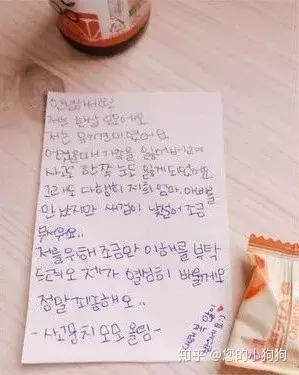 안녕하세요
저는 한살 모모에요
저는 유기견이었어요
어렸을때 가족을 잃어버리
사고로 한쪽 눈도 잃게되었어요
그래도 다행히 저희 엄마, 아빠를
만났지만 세상이 낯설어 조금
무서워요..
저를위해 조금만 이해를 부탁
드려요 제가 열심히 배울게요
정말 죄송해요..
-사고뭉치 모모 올림-
知乎 @您的小狗狗